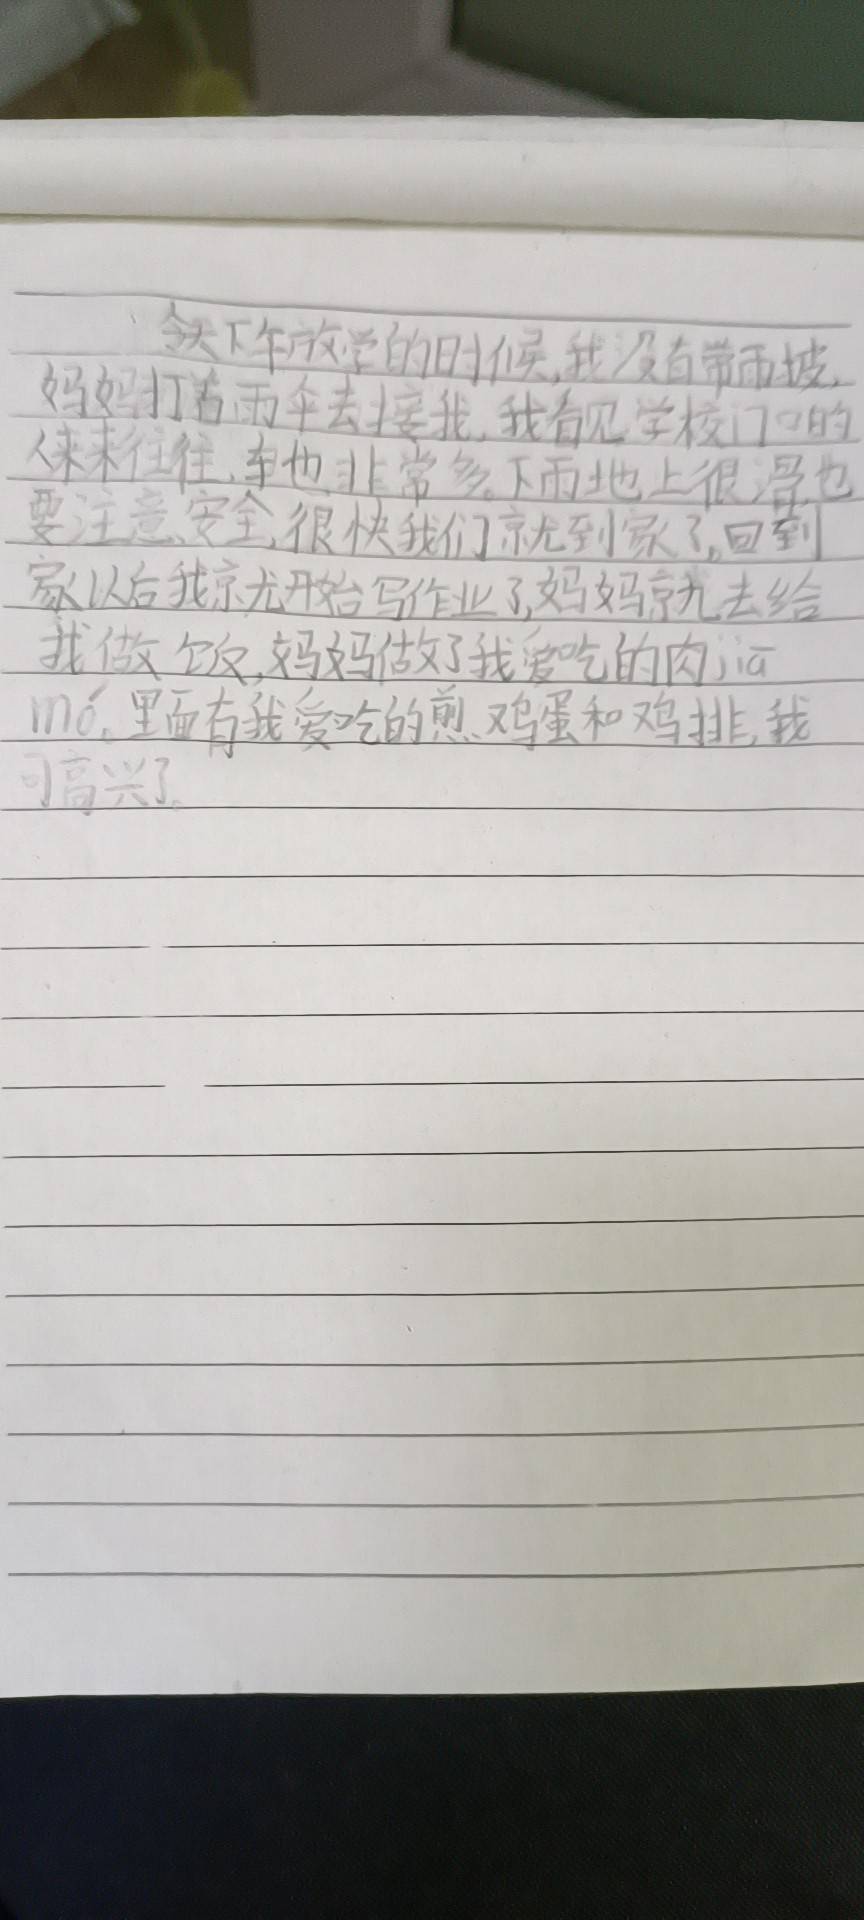 今天下午放学的时候,我没有带雨披,
妈妈打着雨伞去接我,我看见学校门口的
人来来往往,车也非常多。下雨地上很滑也
要注意安全,很快我们就到家了。回到
家以后我就开始写作业了,妈妈就去给
我做饭,妈妈做了我爱吃的肉jiā
mó。里面有我爱吃的煎鸡蛋和鸡排,我
可高兴了。